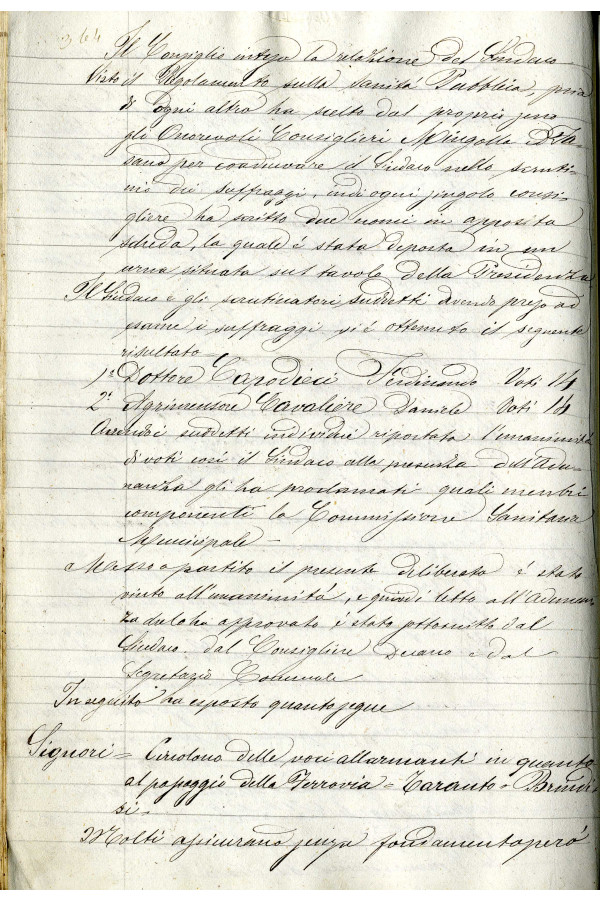 364
Il Consiglio intesa la relazione del Sindaco
Visto il Regolamento sulla sanità Pubblica, pria
di ogni altro ha scelto dal proprio seno
gli Onorevoli Consiglieri Mingolla e Fa-
sano per coadiuvare il Sindaco nello scruti-
nio dei suffragi, indi ogni singolo consi-
gliere ha scritto due nomi in apposita
scheda, la quale è stata deposta in un
urna situata sul tavolo della Presidenza
Il Sindaco e gli scrutinatori suddetti avendo preso ad
esame i suffraggi si è ottenuto il seguente
risultato
1º Dottore Capodieci Ferdinando Voti 14
2º Agrimensore Cavaliere Daniele Voti 14
Avendo i suddetti individui riportata l'unanimità
di voti così il Sindaco alla presenza dell'Adu-
nanza gli ha proclamati quali membri
componenti la Commissione Sanitaria
Municipale -
Messo a partito il presente deliberato è stato
vinto all'unanimità, e quindi letto all'Adunan-
za che lo ha approvato è stato sottoscritto dal
Sindaco dal Consigliere Decano e dal
Segretario Comunale
In seguito ha esposto quanto segue
Signori = Circolano delle voci allarmanti in quanto
al passaggio della Ferrovia = Taranto = Brindi
si =
Molti assicurano senza fondamento però